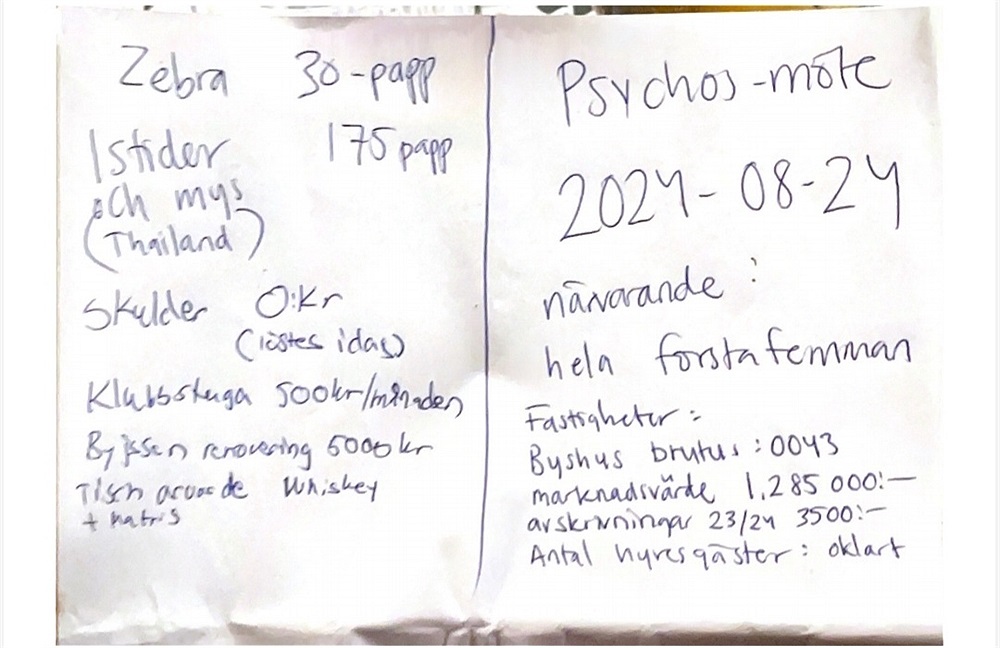 Zebra 30-papp
Istider 175 papp
och mys
(Thailand)
Skulder 0:Kr
(löstes idag)
Klubbstuga 500kr/månaden
renovering 5000 kr
Whiskey
+
Psychos-möte
2024-08-24
närvarande :
hela förstafemman
Fastigheter :
Byshus brutus : 0043
marknadsvärde 1,285 000:-
avskrivningar 23/24 3500:-
Antal hyresgäster : oklart